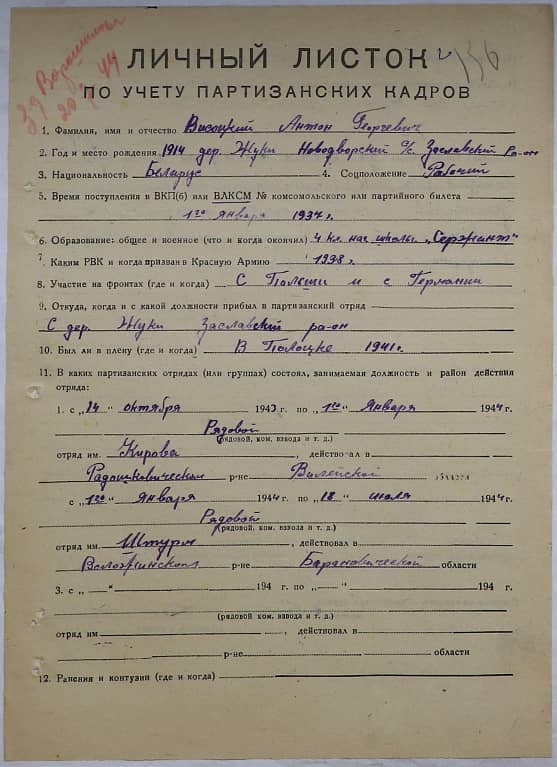 39 Ворошилов
20/X 44
156
ЛИЧНЫЙ ЛИСТОК
ПО УЧЕТУ ПАРТИЗАНСКИХ КАДРОВ
1. Фамилия, имя и отчество Высоцкий Антон Георгевич
2. Год и место рождения 1914 дер. Жуки Новодворский с/с Заславский ра-он
3. Национальность Беларус 4. Соцположение Рабочий
5. Время поступления в ВКП(б) или ВЛКСМ № комсомольского или партийного билета
1го января 1937г.
6. Образование: общее и военное (что и когда окончил) 4 кл. нач школы. „Сержант"
7. Каким РВК и когда призван в Красную Армию 1938г.
8. Участие на фронтах (где и когда) С Польши и с Германии
9. Откуда, когда и с какой должности прибыл в партизанский отряд
С дер. Жуки Заславский ра-он
10. Был ли в плену (где и когда) В Полоцке 1941г.
11. В каких партизанских отрядах (или группах) состоял, занимаемая должность и район действия
отряда:
1. с „14" октября 1943 г. по „1го" Января 1944 г.
Рядовой
(рядовой, ком. взвода и т. д.)
отряд им. Кирова, действовал в
Радошковическом р-не Вилейской области
с „1го" января 1944 г. по „18" июля 1944 г.
Рядовой
(рядовой, ком. взвода и т. д.)
отряд им. Штурм, действовал в
Воложинском р-не Барановической области
3. с „—" 194 г. по „—" 194 г.
(рядовой ком. взвода и т. д.)
отряд им , действовал в
р-не области
12. Ранения и контузии (где и когда)